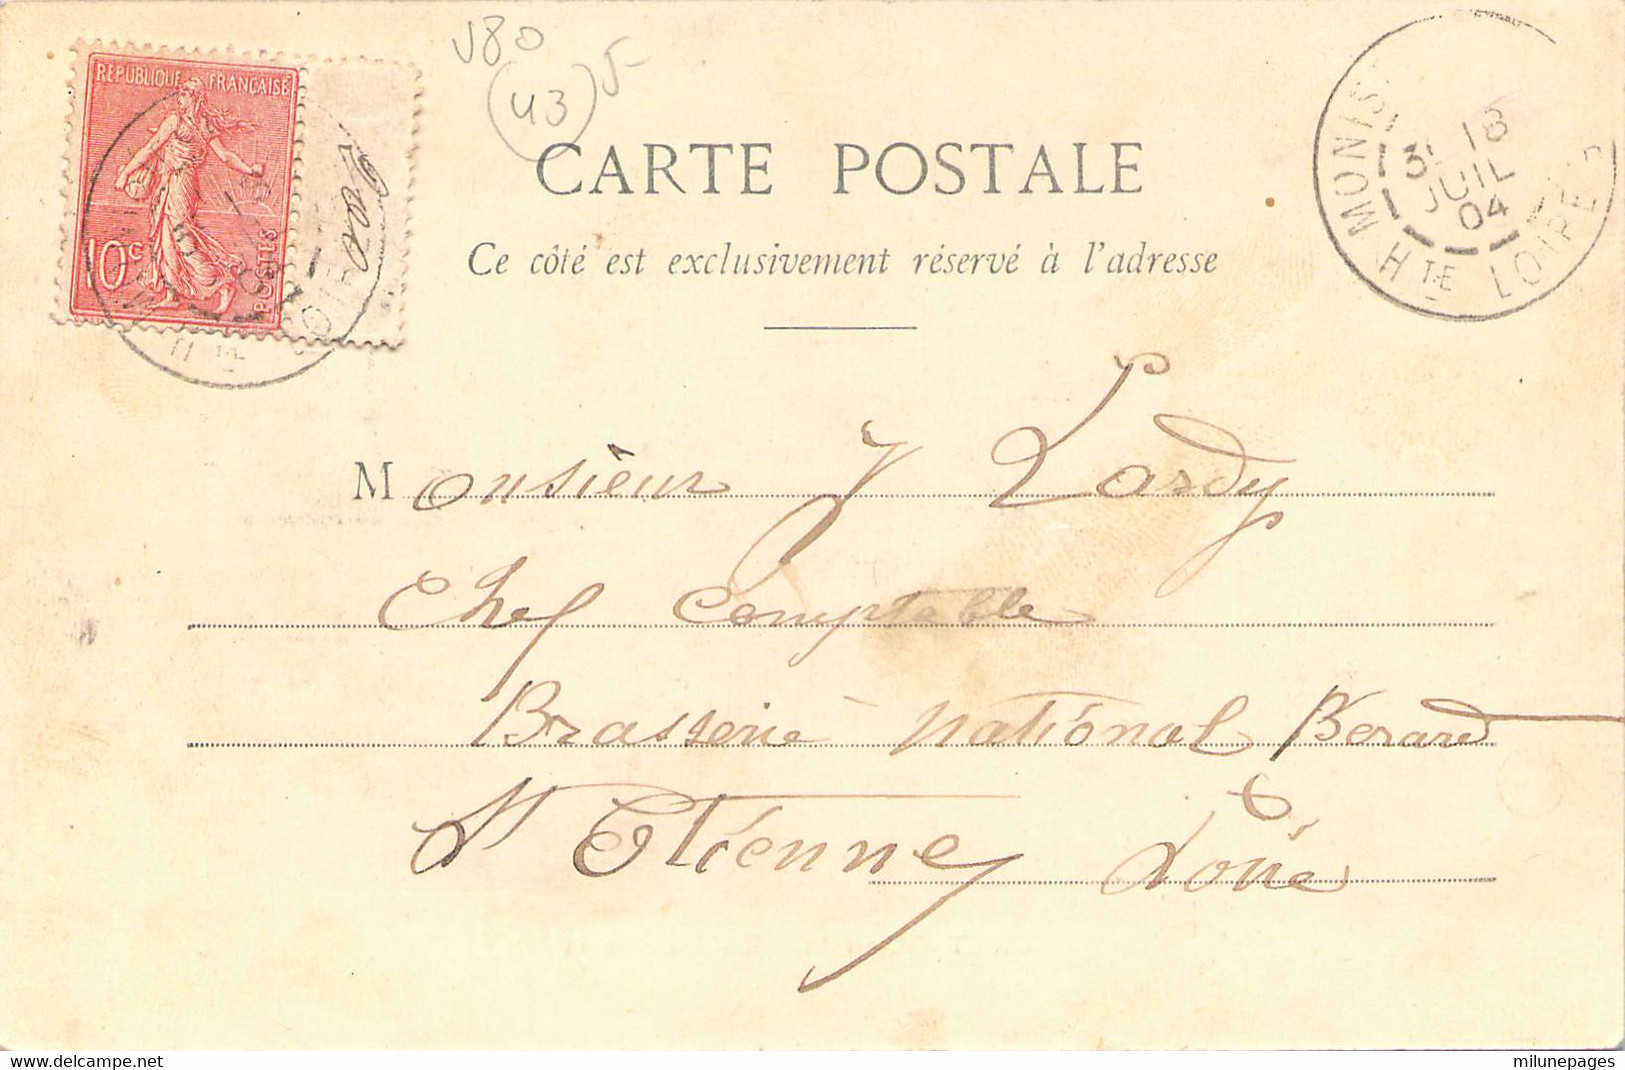 V80
43
5-
RÉPUBLIQUE FRANÇAISE
10c
POSTES
MONIS
3E 18
JUIL
04
HTE LOIRE
CARTE POSTALE
Ce côté est exclusivement réservé à l'adresse
Monsieur J Lardy
Chef Comptable
Brasserie National Berard
St Etienne Loire
https://www.delcampe.net
milunepages